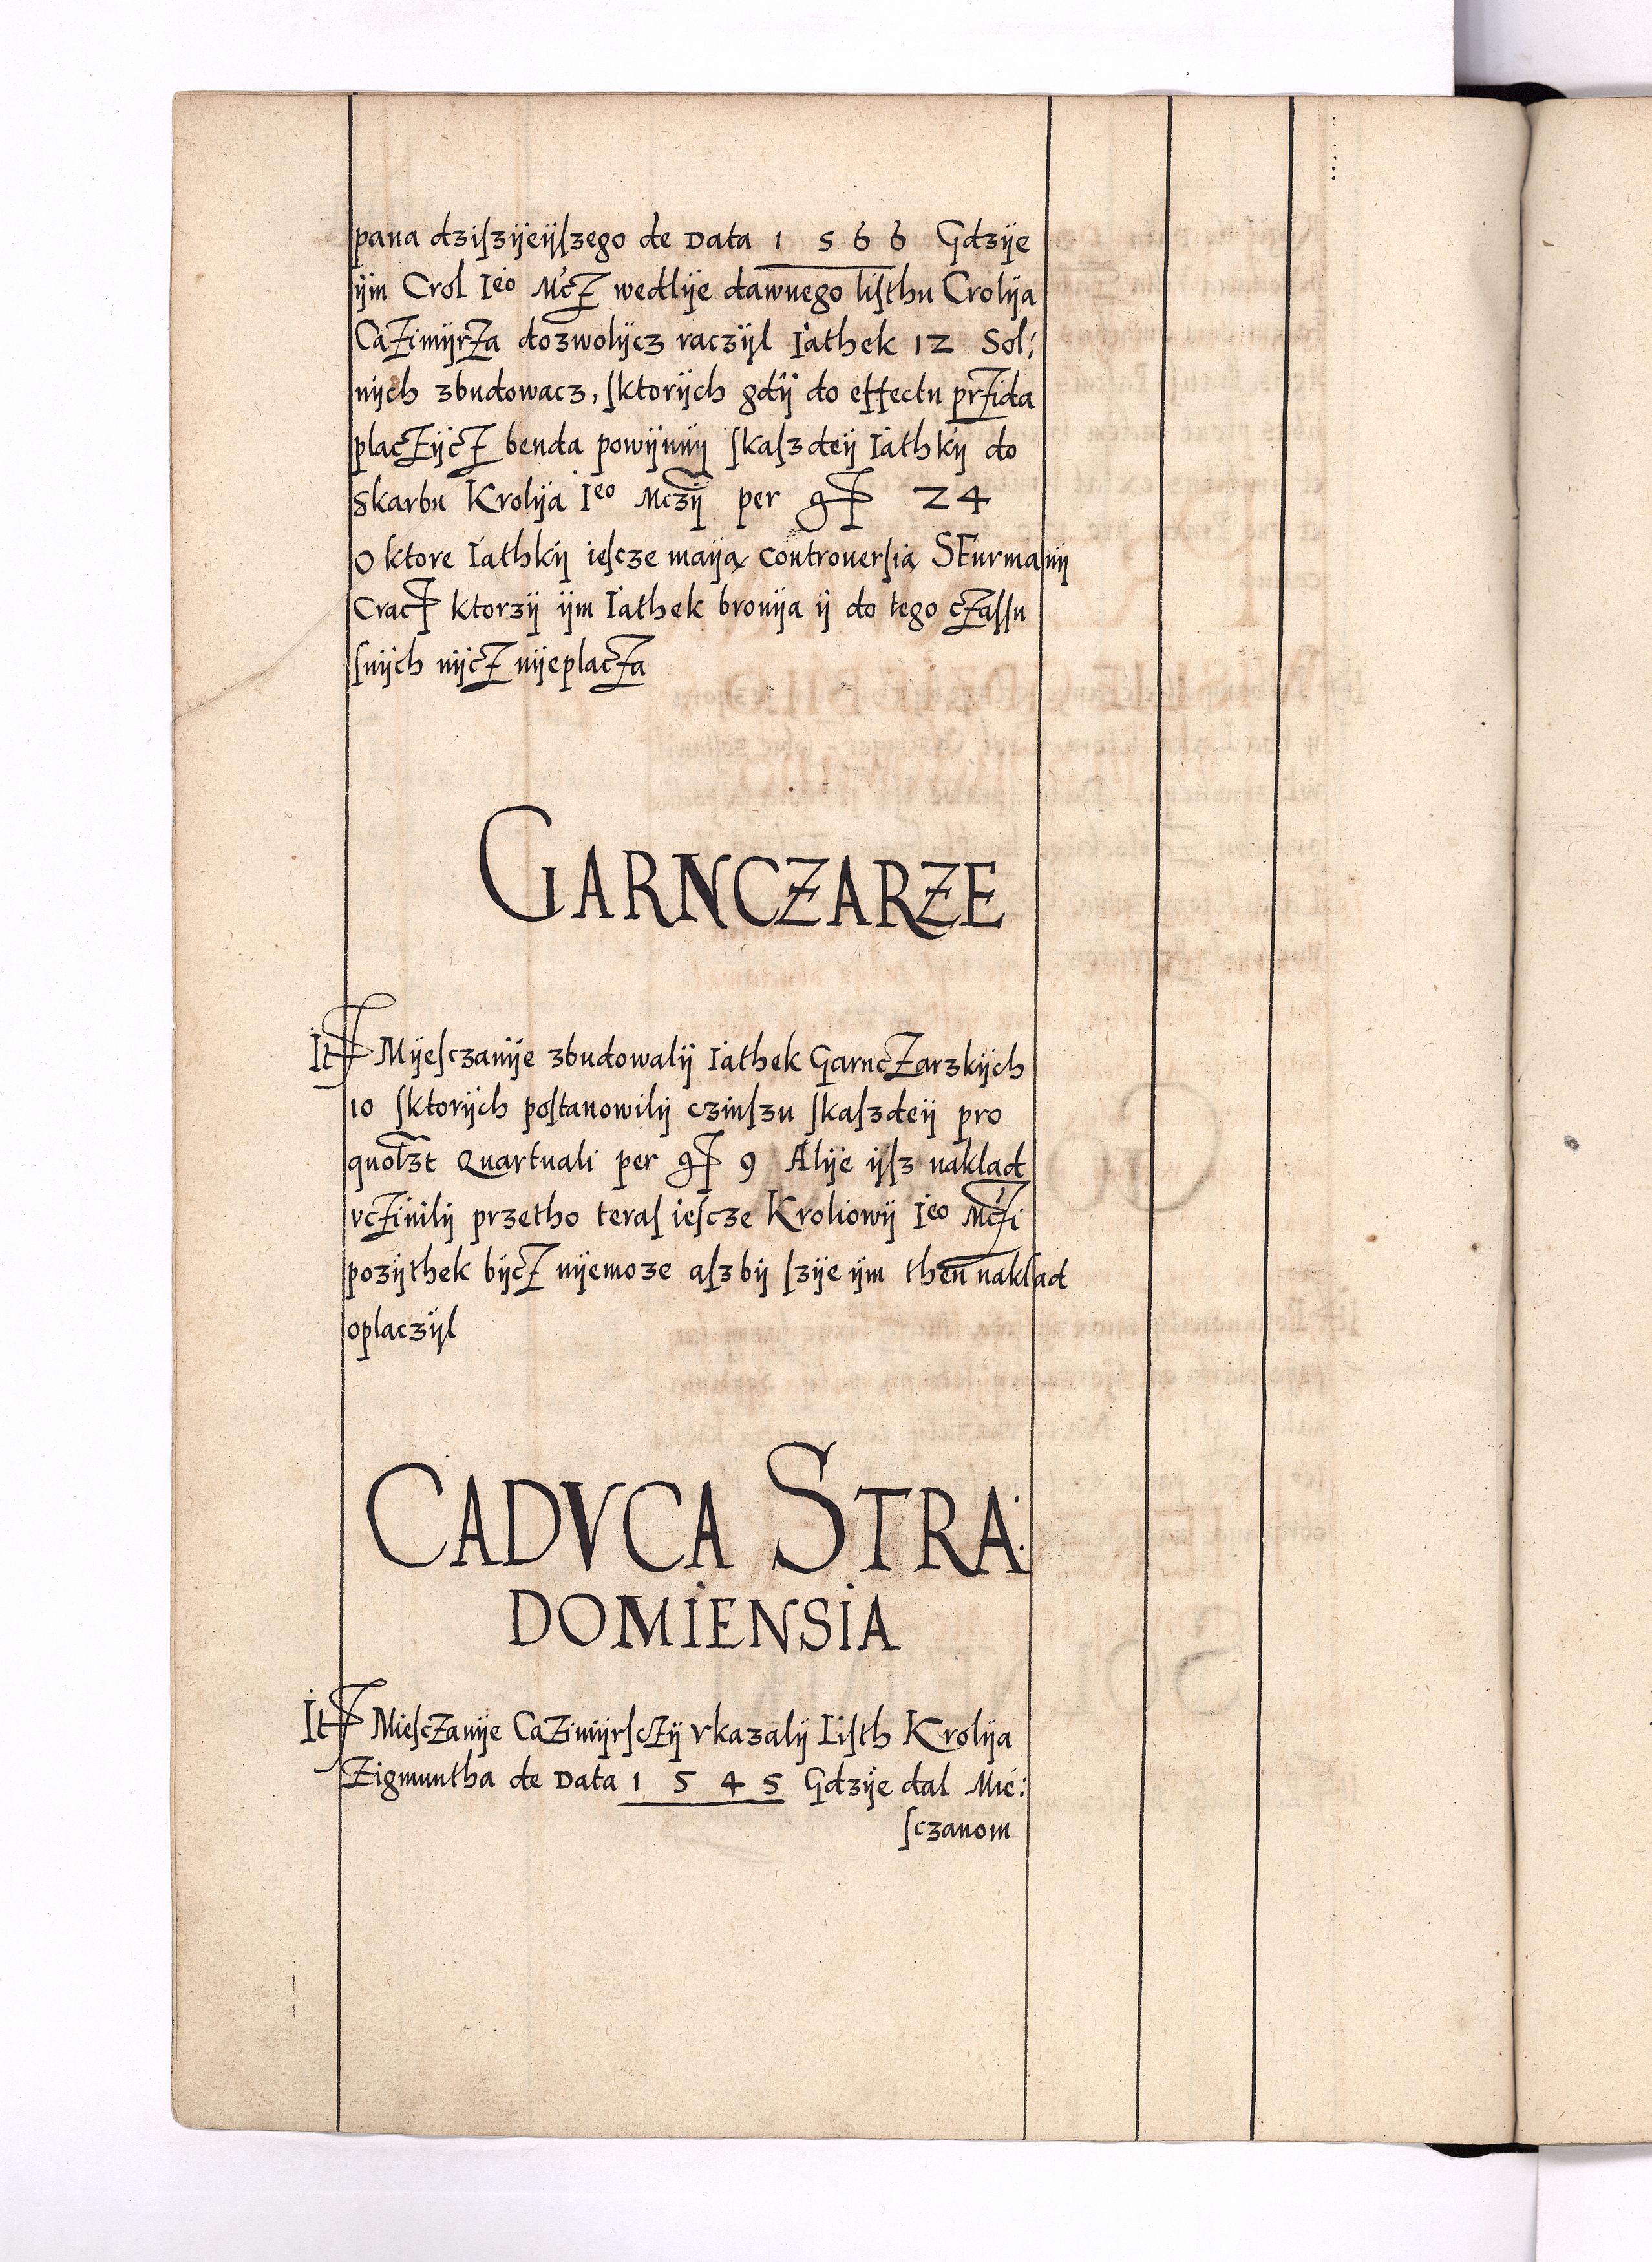 pana dziſzÿeÿſzego de Data 1 5 6 6 Gdzÿe
ÿm Crol Ieo Mcz wedlÿe dawnego liſthu Crolÿa
Cazimÿrza dozwolÿcz raczÿl Iathek 12 Sol:
nÿch zbudowacz, ſktorÿch gdÿ do effectu przida
placzÿcz benda powÿnnÿ ſkaſzdeÿ Iathkÿ do
Skarbu Krolÿa Ieo Mczÿ per gr 24
O ktore Iathkÿ ieſcze maÿą controuerſią STurmanÿ
Crac ktorzÿ ÿm Iathek bronÿa ÿ do tego czaſſu
ſnÿch nÿcz nÿeplacza
GARNCZARZE
It Mÿeſczanÿe zbudowalÿ Iathek Garnczarzkÿch
10 ſktorÿch poſtanowilÿ czinſzu ſkaſzdeÿ pro
quolzt Quartuali per gr 9 Alÿe ÿſz naklad
vczinilÿ przetho teraſ ieſcze Kroliowÿ Ieo Mczi
pozÿthek bÿcz nÿemoze aſzbÿ ſzÿe ÿm then naklad
oplaczÿl
CADVCA STRA:
DOMIENSIA
It Mieſczanÿe Cazimÿrſczÿ vkazalÿ Liſth Krolÿa
Zigmuntha de Data 1 5 4 5 Gdzÿe dal Mie:
ſczanom